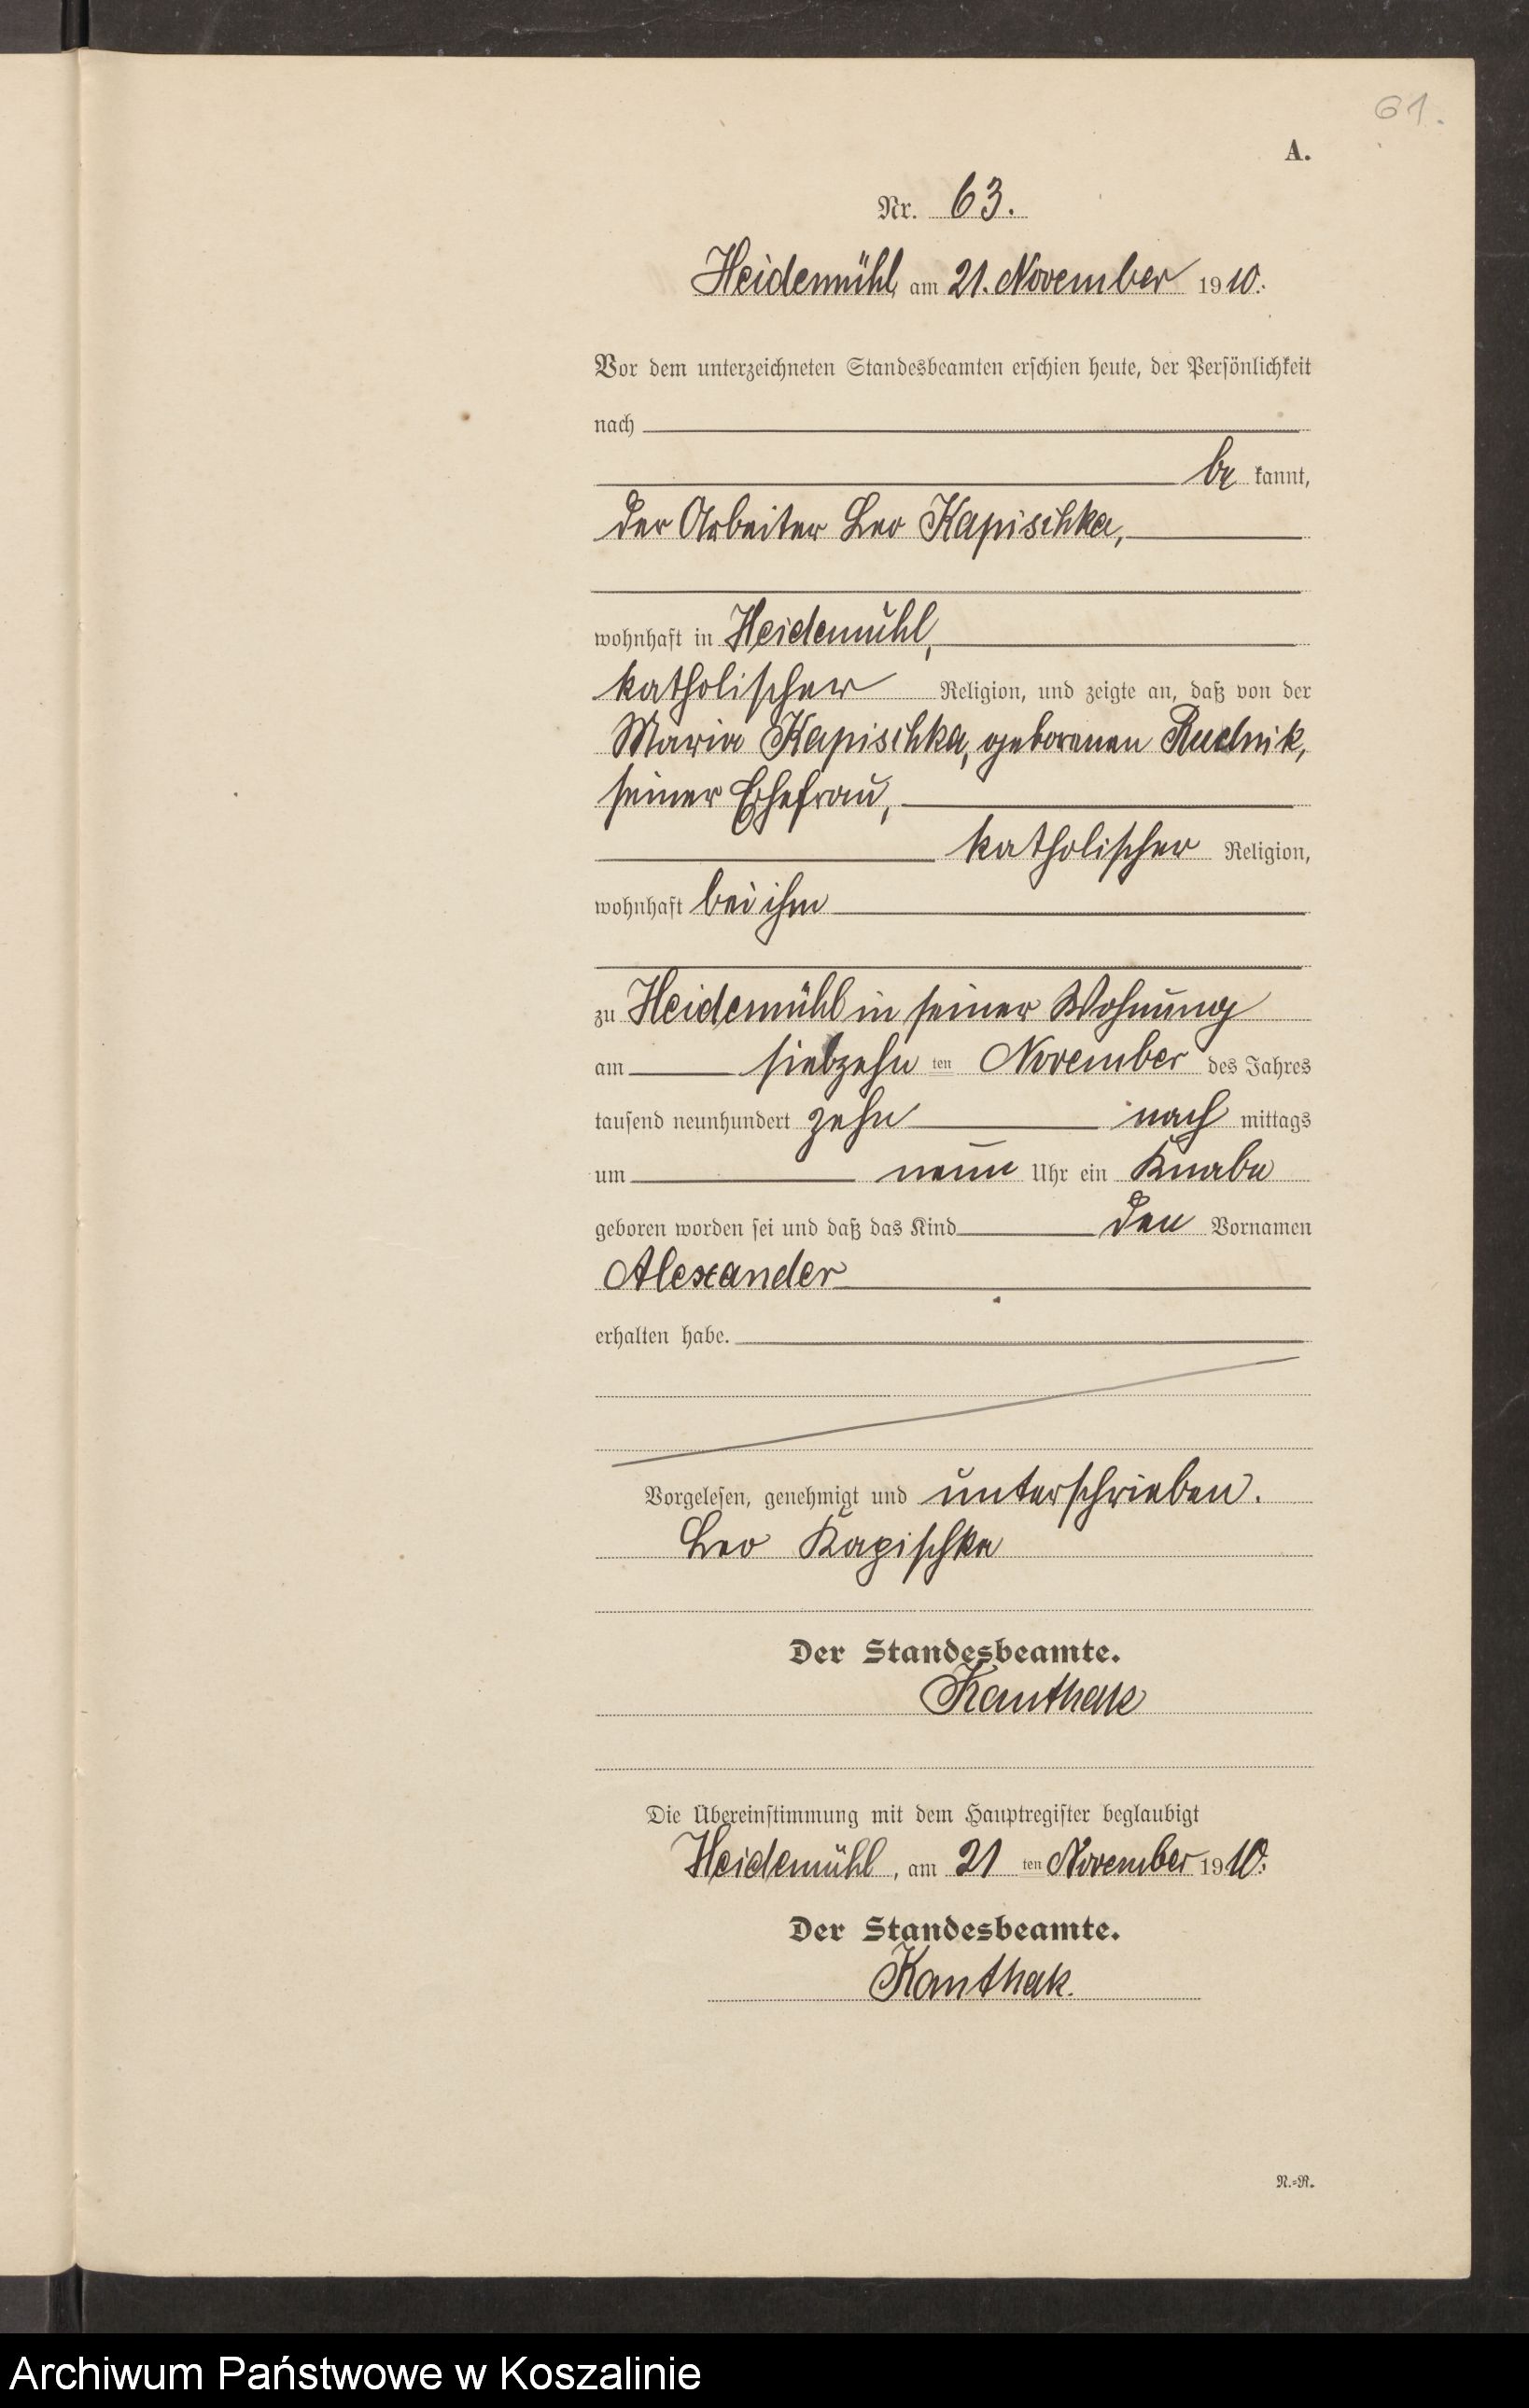 61.
A.
Nr. 63.
Heidemühl, am 21. November 1910.
Vor dem unterzeichneten Standesbeamten erschien heute, der Persönlichkeit
nach
be kannt,
der Arbeiter Leo Kapischka,
wohnhaft in Heidemühl,
katholischer Religion, und zeigte an, daß von der
Maria Kapischka, geborenen Rudnik,
seiner Ehefrau,
katholischer Religion,
wohnhaft bei ihm
zu Heidemühl in seiner Wohnung
am siebzehn ten November des Jahres
tausend neunhundert zehn nach mittags
um neun Uhr ein Knabe
geboren worden sei und daß das Kind den Vornamen
Alexander
erhalten habe.
Vorgelesen, genehmigt und unterschrieben.
Leo Kapischka
Der Standesbeamte.
Kanthak
Die Übereinstimmung mit dem Hauptregister beglaubigt
Heidemühl, am 21 ten November 1910.
Der Standesbeamte.
Kanthak.
N.=R.
Archiwum Państwowe w Koszalinie